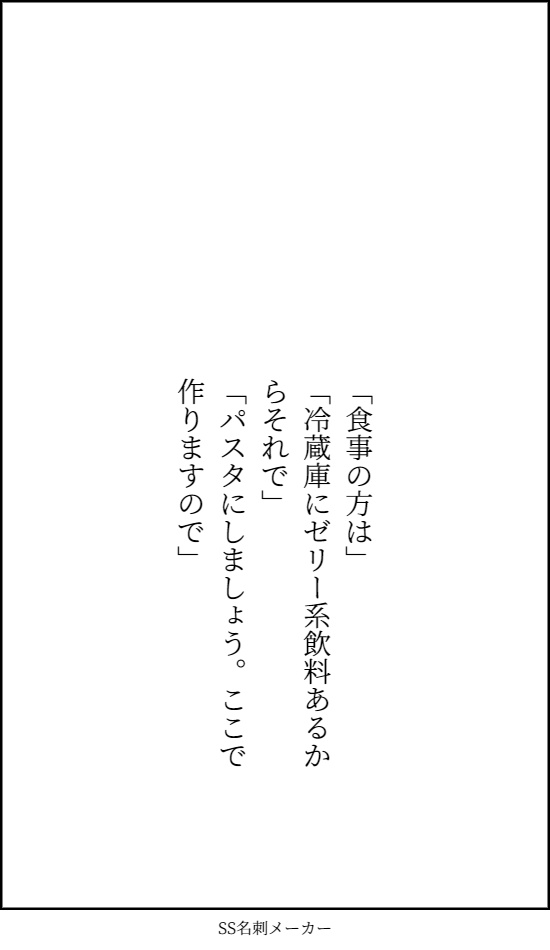 「食事の方は」
「冷蔵庫にゼリー系飲料あるか
らそれで」
「パスタにしましょう。ここで
作りますので」
SS名刺メーカー